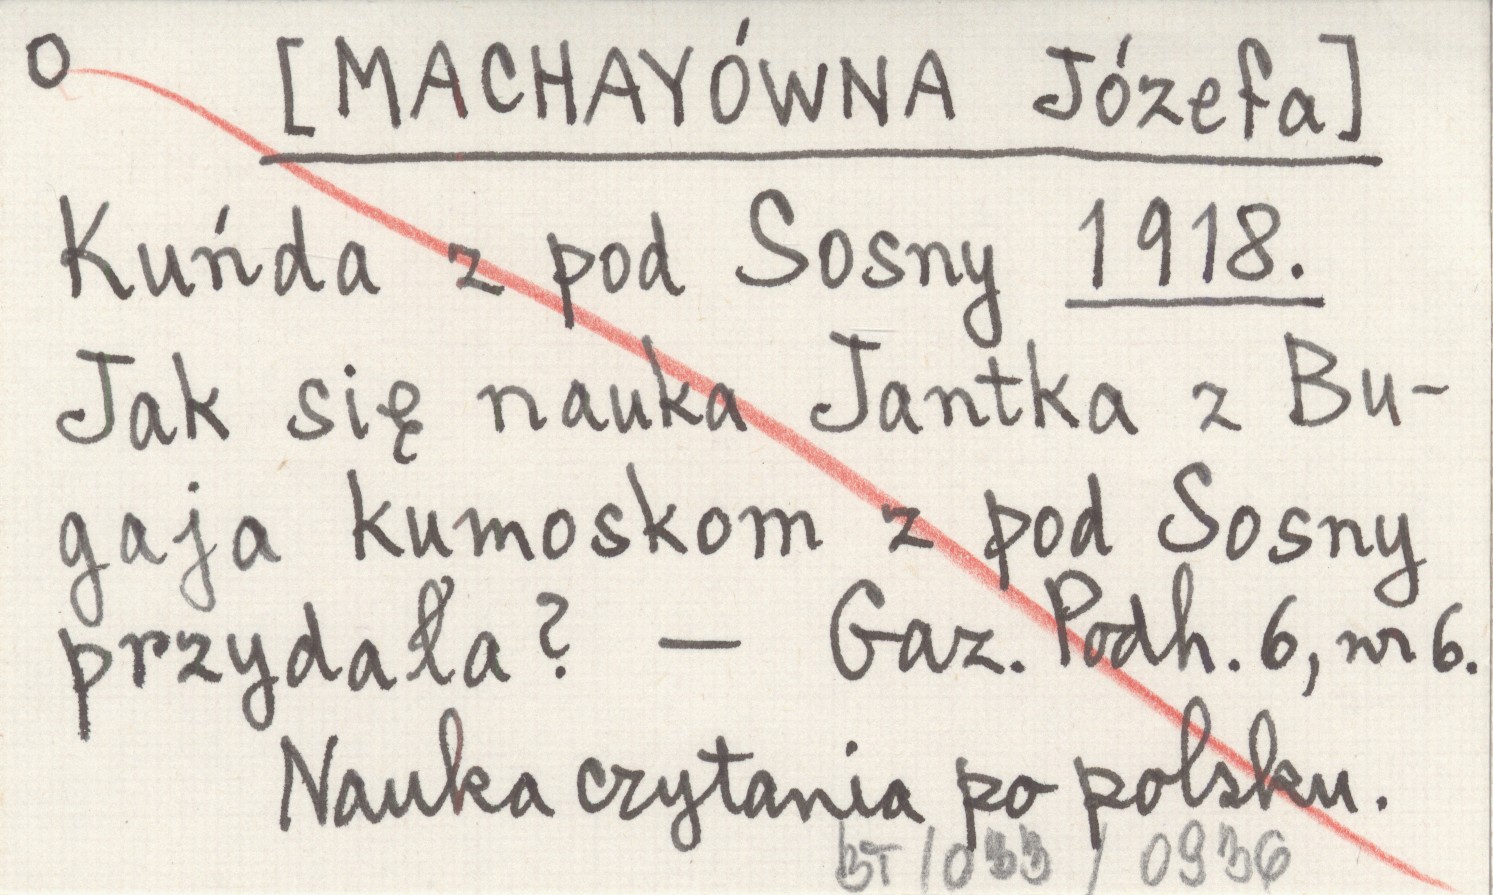 O [MACHAYÓWNA Józefa]
Kuńda z pod Sosny 1918.
Jak się nauka Jantka z Bu-
gaja kumoskom z pod Sosny
przydała? — Gaz. Podh. 6, nr 6.
Nauka czytania po polsku.
BT / 033 / 0936